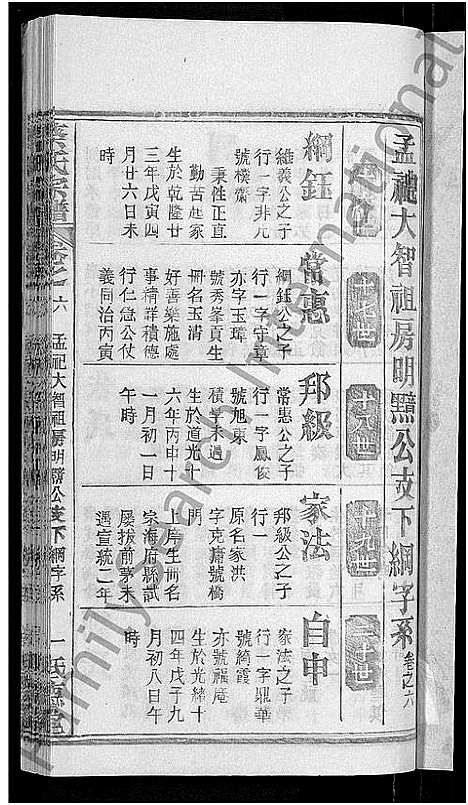 孟祀大智祖房明黯公支下綱字系 卷之六
十七世
十八世
十九世
二十世
綱鈺
維義公之子
行一字非凡
號樸齋
秉性正直
勤苦起家
生於乾隆廿
三年戊寅四
月廿六日未
時
常惠
綱鈺公之子
行一字守章
亦字玉璋
號秀峯貢生
冊名玉清
好善樂施處
事精詳積德
行仁急公仗
義同治丙寅
邦級
常惠公之子
行一字鳳俊
號旭東
積學未遇
生於道光十
六年丙申十
一月初一日
午時
家法
邦級公之子
行一
原名家洪
字克庸號橋
門
上庠生冊名
宗海府縣試
屢拔前茅未
遇宣統二年
自中
家法之子
行一字鼎華
號綺霞
亦號福庵
生於光緒十
四年戊子九
月初八日午
時
氏宗譜 卷之六 孟祀大智祖房明黯公支下綱字系 一
Family Search International